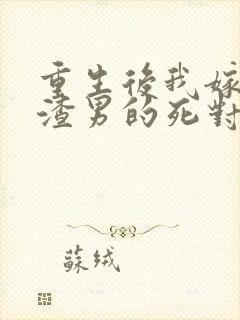 重生後我嫁
渣男的死對
蘇绒